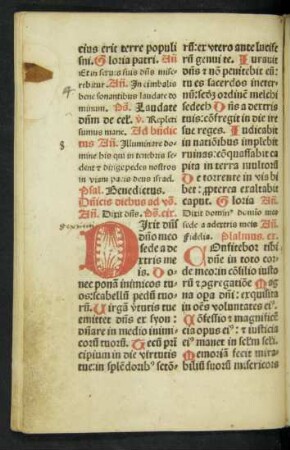 eius erit terre populi
sui. Gloria patri. Añ
Et in seruis suis dñs mise
rebitur. Añ. In cimbalis
bene sonantibus laudate do
minum. Ps. Laudate
dñum de cel. v. Repleti
sumus mane. Ad bñdic
tus Añ. Illuminare do
mine his qui in tenebris se
dent ⁊ dirige pedes nostros
in viam pacis deus israel.
Psal. Benedictus.
Dñicis diebus ad vs.
Añ. Dixit dñs. Ps. cix.
Dixit dñs
dño meo
sede a dex
tris me
is. Do
nec ponā inimicos tu
os: scabellū pedū tuo
rū. Uirgā v̓tutis tue
emittet dñs ex syon:
dñare in medio inimi
corū tuorū. Tecū prī
cipium in die virtutis
tue: in splēdorib⁹ sctō
rū: ex vtero ante lucife
rū genui te. Iurauit
dñs ⁊ nō penitebit eū:
tu es sacerdos in eter
nū: scd̓ȝ ordinē melchi
sedech. Dñs a dextris
tuis: cōfregit in die ire
sue reges. Iudicabit
in natiōibus implebit
ruinas: cōquassabit ca
pita in terra multorū
De torrente in via bi
bet: ꝓpterea exaltabit
caput. Gloria Añ.
Dixit domin⁹ domino meo
sede a dextris meis Añ.
Fidelia. Psalmus. cx.
Confitebor tibi
dñe in toto cor
de meo: in cōsilio iusto
rū ⁊ ↄgregatiōe Mag
na oꝑa dñi: exquisita
in oēs voluntates ei⁹.
Cōfessio ⁊ magnificē
cia opus ei⁹: ⁊ iusticia
ei⁹ manet in sclm̄ scl̄i
Memoriā fecit mira
biliū suorū misericors